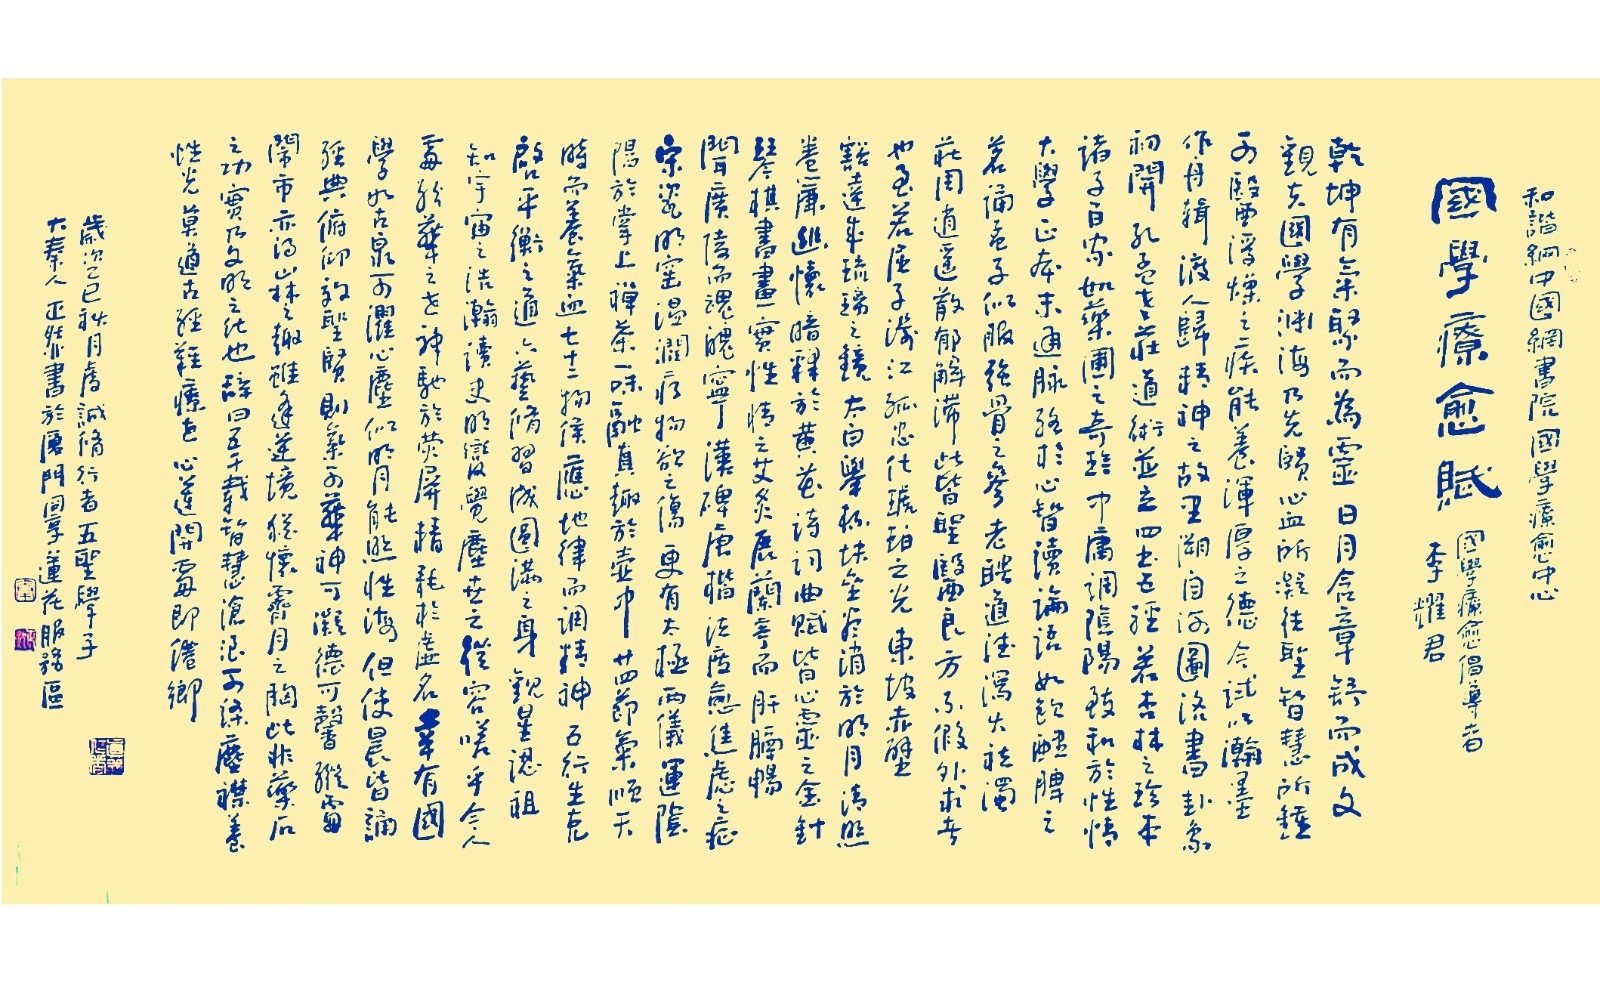 和諧網中國網書院國學療愈中心
國學療愈賦
國學療愈倡導者
李耀君
乾坤有氣聚而為靈日月含章舒而成文
觀夫國學淵海乃先賢心血所凝往聖智慧所鍾
可醫浮燥之疾能養渾厚之德今試以瀚墨
作舟輯渡人歸精神之故里溯自河圖洛書卦象
初開孔孟老莊道術並立四書五經若杏林之珍本
諸子百家如藥圃之奇珍中庸調陰陽致和於性情
大學正本末通脉絡於心智讀論語如飲醴脾之
茗誦孟子似服強骨之參老聃道德瀉火祛濁
莊周逍遥散郁解滯此皆聖醫良方不假外求者
也至若屈子涉江孤忠化琥珀之光東坡赤壁
豁達成琉璃之鏡太白舉杯块壘尽消於明月清照
卷廉幽懷暗釋於黄花詩詞曲賦皆心靈之金針
琴棋書畫實性情之艾灸展蘭亭而肝膽暢
聞廣陵而魂魄寧漢碑唐楷法度愈焦慮之症
宋瓷明窑温潤疗物欲之傷更有太極兩儀運陰
陽於掌上禪茶一味融真趣於壶中廿四節氣順天
時而養氣血七十二物候應地律而調精神五行生克
啟平衡之道六藝脩習成圆满之身觀星認祖
知宇宙之浩瀚讀史明變覺塵世之從容嗟乎今人
每於華之世神馳於荧屏精耗於虚名幸有國
學如古泉可濯心塵似明月能照性海但使晨皆誦
經典俯仰效聖賢則氣可華神可凝德可馨縱處
鬧市亦得山林之趣雖逢逆境猶懷霽月之胸此非藥石
之功實乃文明之化也辭曰五千載智慧滄浪可滌塵襟養
性光莫道古經難療世心蓮開處即僊鄉
歲次乙巳秋月虔誠脩行者五聖學子
大秦人正然書於厦門同享蓮花服務區